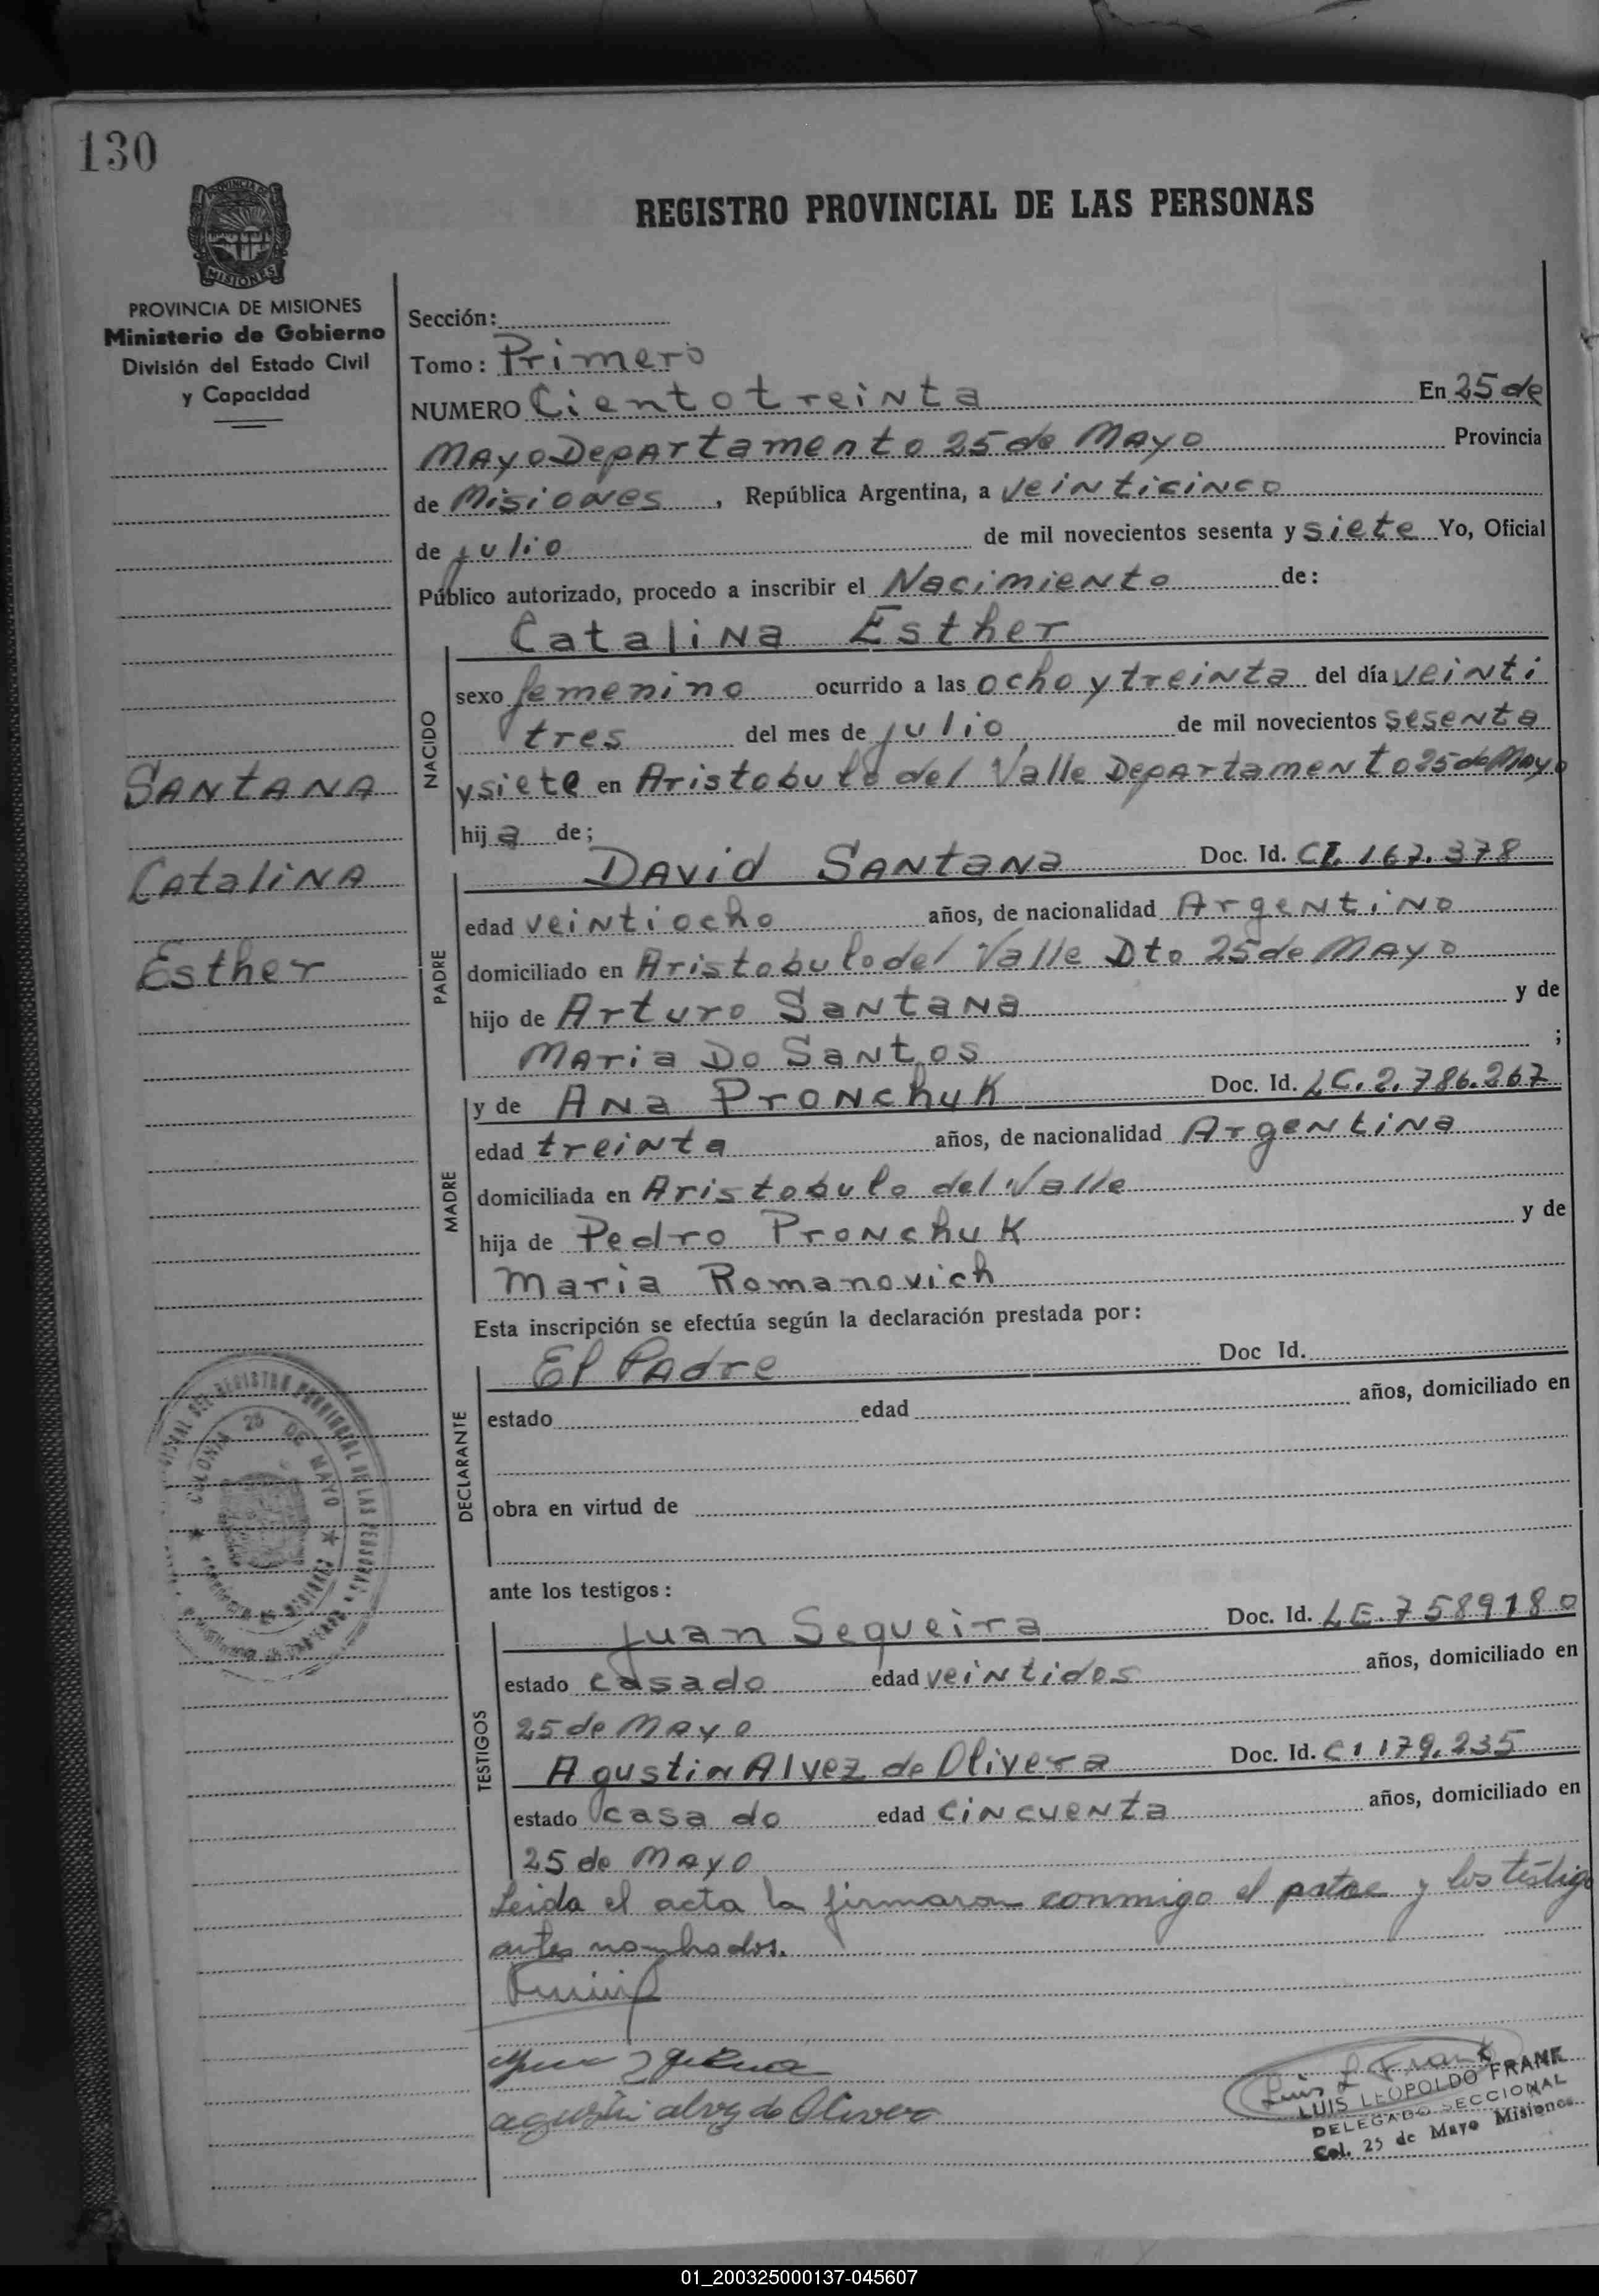 130
REGISTRO PROVINCIAL DE LAS PERSONAS
PROVINCIA DE
MISIONES
PROVINCIA DE MISIONES
Ministerio de Gobierno
División del Estado Civil
y Capacidad
SANTANA
CatalinA
Esther
Sección:
Tomo: Primero
NUMERO Ciento treinta En 25 de
Mayo Departamento 25 de Mayo Provincia
de Misiones, República Argentina, a veinticinco
de julio de mil novecientos sesenta y siete Yo, Oficial
Público autorizado, procedo a inscribir el Nacimiento de:
Catalina Esther
NACIDO
sexo femenino ocurrido a las ocho y treinta del día veinti
tres del mes de julio de mil novecientos sesenta
y siete en Aristobulo del Valle Departamento 25 de Mayo
hija de;
PADRE
David Santana Doc. Id. CI. 167.378
edad veintiocho años, de nacionalidad Argentino
domiciliado en Aristobulo del Valle Dto 25 de Mayo
hijo de Arturo Santana y de
Maria Do Santos ;
MADRE
y de Ana Pronchuk Doc. Id. LC. 2.786.267
edad treinta años, de nacionalidad Argentina
domiciliada en Aristobulo del Valle
hija de Pedro Pronchuk y de
Maria Romanovich
Esta inscripción se efectúa según la declaración prestada por:
DECLARANTE
El Padre Doc Id.
estado edad años, domiciliado en
obra en virtud de
ante los testigos:
TESTIGOS
Juan Sequeira Doc. Id. LE. 7589180
estado casado edad veintidos años, domiciliado en
25 de Mayo
Agustin Alvez de Olivera Doc. Id. CI 179.235
estado casado edad cincuenta años, domiciliado en
25 de Mayo
Leida el acta la firmaron conmigo el padre y los testigo
antes nombrados.
agustin alvez de Olivera
Luis L Frank
LUIS LEOPOLDO FRANK
DELEGADO SECCIONAL
Col. 25 de Mayo Misiones
COLONIA 25 DE MAYO
01_200325000137-045607